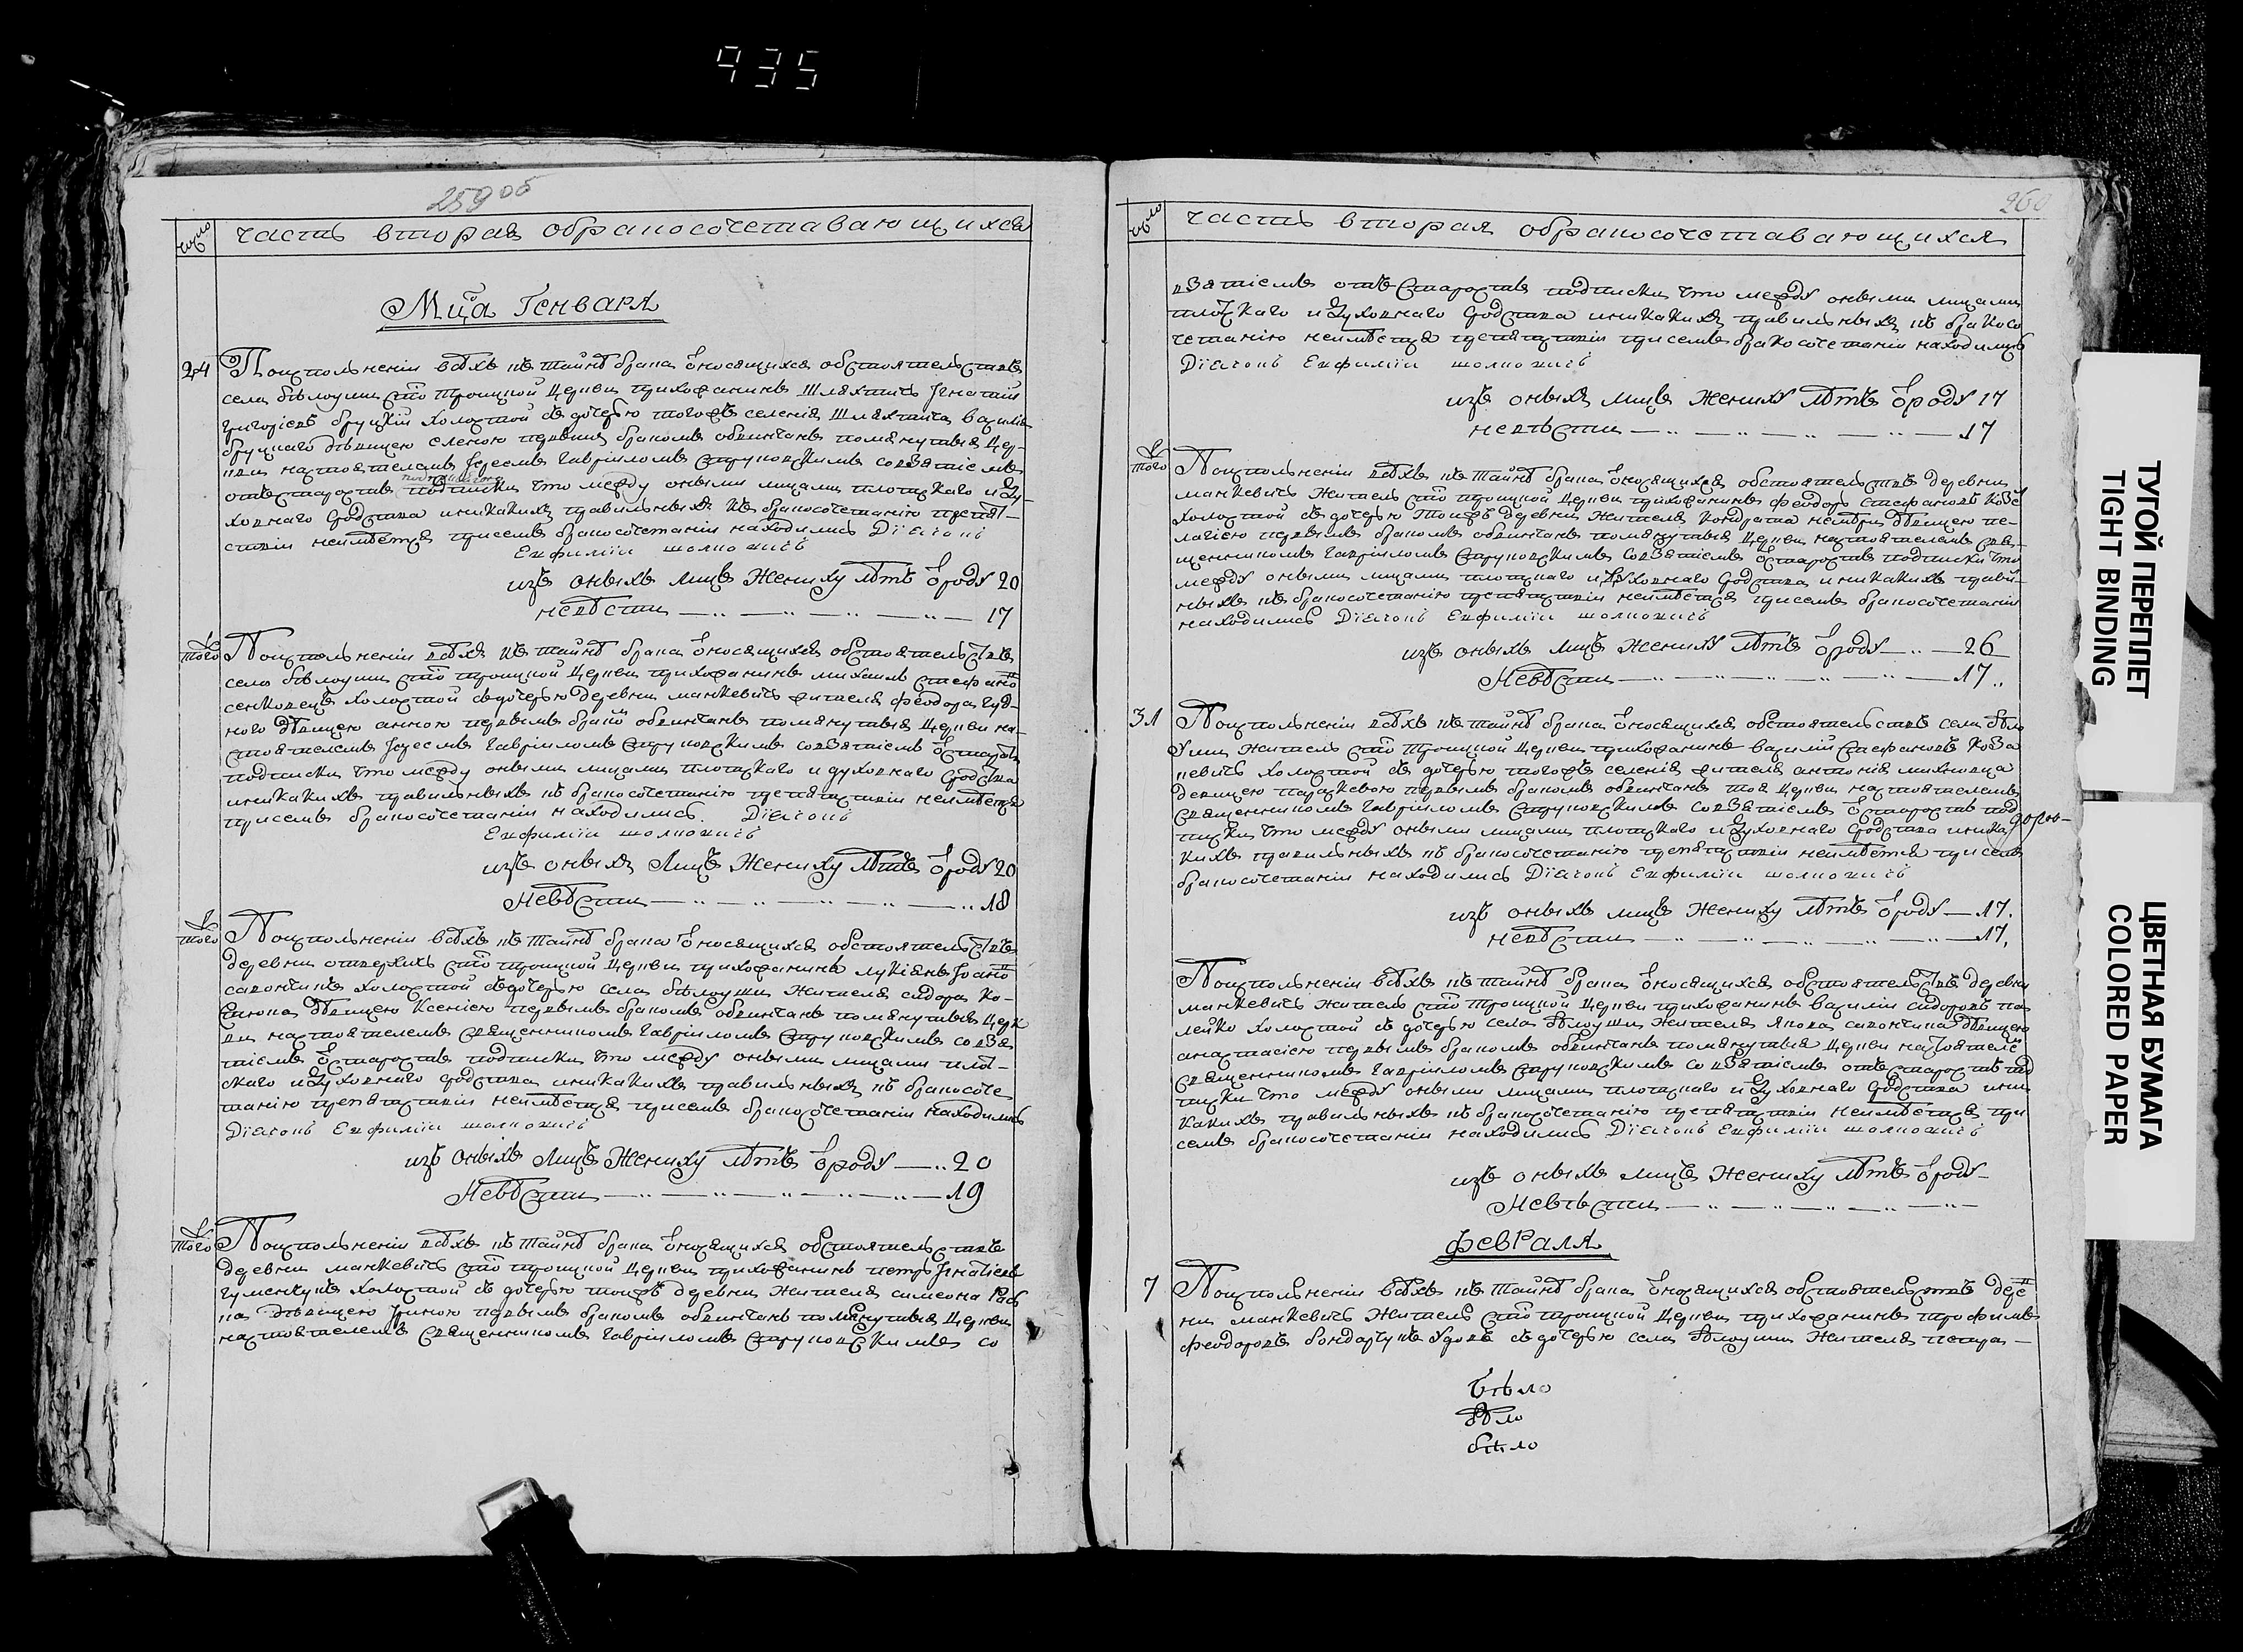 435
259об
число
часть вторая обракосочетавающихся
Мца Генваря
24
Поисполненіи всѣхъ кѣ тайнѣ брака ѿносящихся обстоятельствъ
села бѣлоуши сто троицкой Церкви прихожанинъ Шляхтичъ Игнатій
григоріевъ бруцкій холостой съ дочерью тогожъ селенія Шляхтича василія
бруцкаго дѣвицею еленою первымъ бракомъ обвинчанъ помянутыя Цер-
кви настоятелемъ Іереемъ Гавріиломъ Струковскимъ совзятіемъ
отъстаростъ подписки что между оными лицами плотскаго и Ду-
ховнаго Сродства иникакихъ правильныхъ къ бракосочетанію препят-
ствіи неимѣется присемъ бракосочетаніи находились Діаконъ
Евфимій
изъ оныхъ лицъ Жениху лѣтъ ѿроду 20
невѣсти 17
того
Поисполненіи всѣхъ къ тайнѣ брака ѿносящихся обстоятельствъ
села бѣлоуши сто троицкой Церкви прихожанинъ михаилъ стефано
сенковецъ холостой съдочерью деревни манкевичъ жителя феодора
ного дѣвицею анною первымъ брако обвинчанъ помянутыя Церкви на-
стоятелемъ Іереемъ Гавріиломъ Струковскимъ совзятіемъ ѿстаростъ
подписки что между оными лицами плотскаго и духовнаго Сродства
иникакихъ правильныхъ къ бракосочетанію препятствіи неимѣется
присемъ бракосочетаніи находились. Діаконъ
Евфимій
изъ оныхъ Лицъ Жениху лѣтъ ѿроду 20
Невѣсти 18
того
Поисполненіи всѣхъ къ тайнѣ брака ѿносящихся обстоятельствъ
деревни отвержичъ сто троицкой Церкви прихожанинъ лукіанъ Іоано
савончикъ холостой съдочерью села бѣлоуши Жителя сидора Ко-
дѣвицею Ксеніею первымъ бракомъ обвинчанъ помянутыя Церк
ви настоятелемъ Священникомъ Гавріиломъ Струковскимъ совзя
тіемъ ѿстаростъ подписки что между оными лицами плот-
скаго и Духовнаго сродства иникакихъ правильныхъ къ бракосоче
танію препятствіи неимѣется присемъ бракосочетаніи находились
Діаконъ Евфимій
изъ оныхъ Лицъ Жениху лѣтъ ѿроду 20
Невѣсти 19
того
Поисполненіи всѣхъ къ тайнѣ брака ѿносящихся обстоятельствъ
деревни манкевичъ сто троицкой Церкви прихожанинъ петръ Игнатіевъ
гуменчукъ холостой съ дочерью тоижъ деревни Жителя симеона
дѣвицею Іриною первымъ бракомъ обвинчанъ помянутыя Церкви
настоятелемъ Священникомъ Гавріиломъ Струковскимъ со
260
число
часть вторая обракосочетавающихся
взятіемъ отъ Старостъ подписки что между оными лицами
плотскаго и Духовнаго Сродства иникакихъ правильныхъ къ бракосо
четанію неимѣется препятствіи присемъ бракосочетаніи находились
Діаконъ Евфимій
изъ оныхъ лицъ Жениху лѣтъ ѿроду 17
невѣсти 17
того
Поисполненіи всѣхъ къ тайнѣ брака ѿносящихся обстоятельствъ деревни
манкевичъ Житель сто троицкой Церкви прихожанинъ феодоръ стефановъ
холостой съ дочерью Тоижъ деревни Жителя Кондрата дѣвицею пе-
лагіею первымъ бракомъ обвинчанъ помянутыя Церкви настоятелемъ свя-
щенникомъ Гавріиломъ Струковскимъ Совзятіемъ ѿстаростъ подписки что
между оными лицами плотскаго и Духовнаго Сродства иникакихъ правил-
ныхъ къ бракосочетанію препятствіи неимѣется присемъ бракосочетаніи
находились Діаконъ Евфимій
изъ оныхъ лицъ Жениху лѣтъ ѿроду 26
Невѣсти 17
31
Поисполненіи всѣхъ къ тайнѣ брака ѿносящихся обстоятельствъ села бѣло
уши Житель сто троицкой Церкви прихожанинъ василій стефановъ Коза
кевичъ холостой съ дочерью тогожъ селенія жителя антонія михновца
девицею параскевою первымъ бракомъ обвинчанъ тоя Церкви настоятелемъ
священникомъ Гавріиломъ Струковскимъ совзятіемъ ѿстаростъ под
писки что между оными лицами плотскаго и Духовнаго Сродства ника
кихъ правильныхъ къ бракосочетанію препятствіи неимѣется присемъ
бракосочетаніи находились Діаконъ Евфимій
изъ оныхъ лицъ Жениху лѣтъ ѿроду 17.
невѣсти 17.
Поисполненіи всѣхъ къ тайнѣ брака ѿносящихся обстоятельствъ деревни
манкевичъ Житель сто троицкой Церкви прихожанинъ василій сидоровъ па
лейко холостой съ дочерью села бѣлоуши Жителя Якова савончика дѣвицею
анастасіею первымъ бракомъ обвинчанъ помянутыя Церкви настоятеле
священникомъ Гавріиломъ Струковскимъ со взятіемъ отъстаростъ под
писки что между оными лицами плотскаго и Духовнаго Сродства ини
какихъ правильныхъ къ бракосочетанію препятствіи неимѣется при
семъ бракосочетаніи находились Діаконъ Евфимій
изъ оныхъ лицъ Жениху лѣтъ ѿроду
Невѣсти
февраля
7
Поисполненіи всѣхъ къ тайнѣ брака ѿносящихся обстоятельствъ дере
ни манкевичъ Житель сто троицкой Церкви прихожанинъ трофимъ
феодоровъ бондарчукъ удовъ съ дочерью села бѣлоуши Жителя петра
бѣло
бѣло
бѣло
ТУГОЙ ПЕРЕПЛЕТ
TIGHT BINDING
ЦВЕТНАЯ БУМАГА
COLORED PAPER